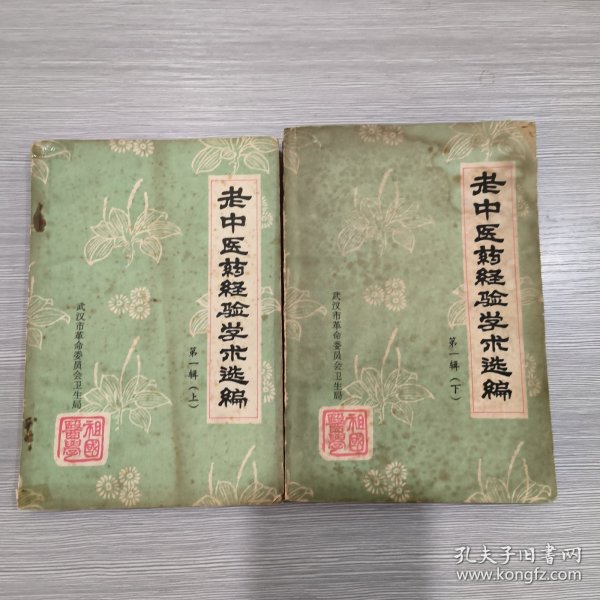 老中医药经验学术选编
第一辑（上）
武汉市革命委员会卫生局
祖國
醫學
老中医药经验学术选编
第一辑（下）
武汉市革命委员会卫生局
祖國
醫學
孔夫子旧书网
www.kongfz.com